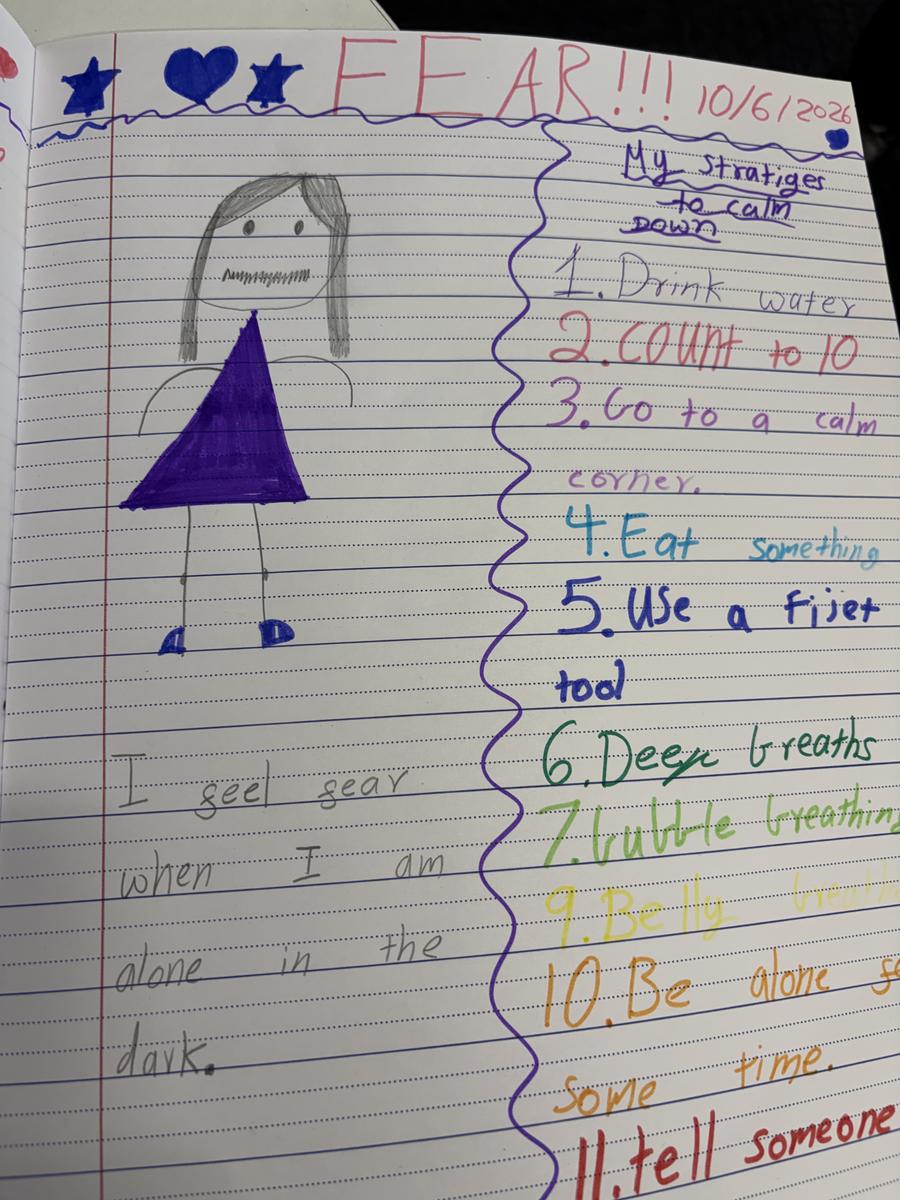 FEAR!!! 10/6/2026
I feel fear
when I am
alone in the
dark.
My stratiges
to calm
DOWN
1. Drink water
2. count to 10
3. Go to a calm
corner.
4. Eat something
5. Use a Fijet
tool
6. Deep breaths
7. bubble breathing
9. Belly breath
10. Be alone
some time.
11. tell someone